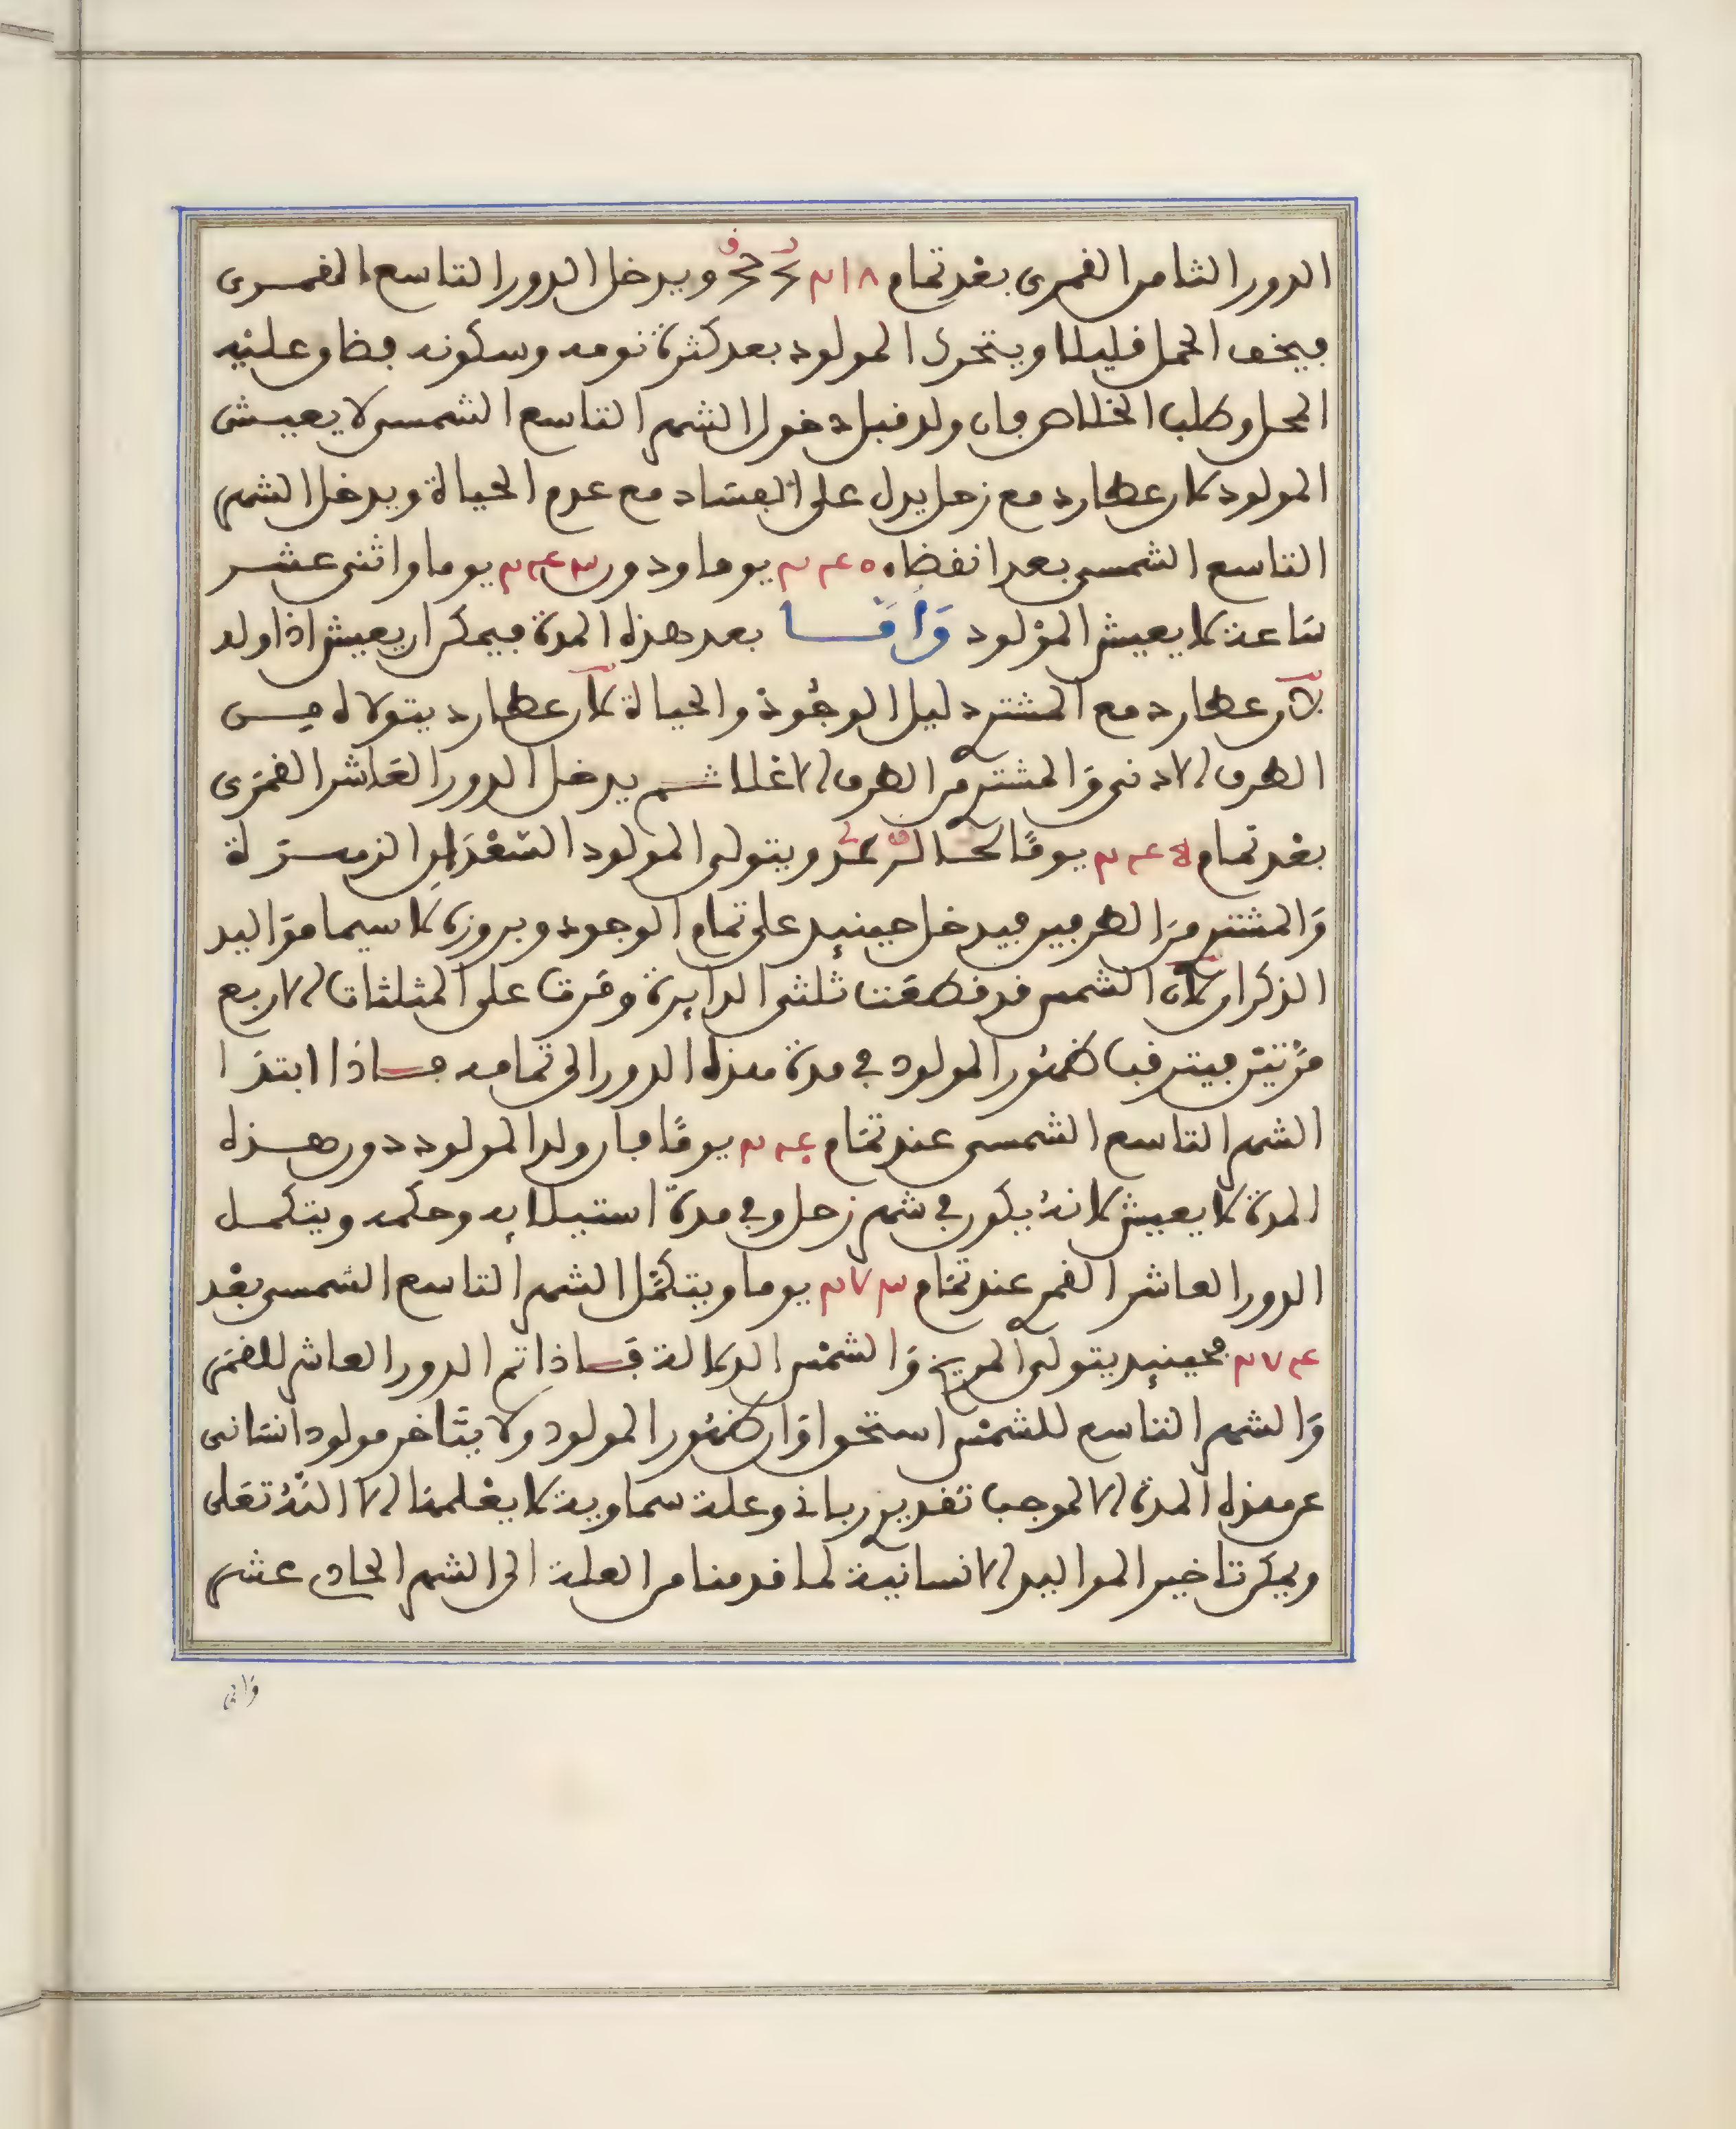 الدور الثامن القمري بعد تمام ٢١٨ ويدخل الدور التاسع القمري
فيخف الحمل قليلا ويتحرك المولود بعد كثرة نومه وسكونه فضاق عليه
المحل وطلب الخلاص فان ولد قبل دخول الشهر التاسع الشمسي لا يعيش
المولود لان عطارد مع زحل يدل على الفساد مع عدم الحياة ويدخل الشهر
التاسع الشمسي بعد انقضاء ٢٤٥ يوما ودور ٢٤٣ يوما واثنى عشر
ساعة لا يعيش المولود وأما بعد هذه المدة فيمكن ان يعيش اذا ولد
لان عطارد مع المشتري دليل الوجود والحياة لان عطارد يتولاه من
الطرف الادنى والمشتري من الطرف الاعلا ثم يدخل الدور العاشر القمري
بعد تمام ٢٤٥ يوما ويتولى المولود السعدان الزهرة
والمشتري من الطرفين فيدخل حينئذ على تمام الوجود وبروزه لا سيما مواليد
الذكران لان الشمس قد قطعت ثلثى الدائرة ومرت على المثلثات الاربع
مرتين فيترقب ظهور المولود في مدة هذه الدور الى تمامه فاذا ابتدا
الشهر التاسع الشمسي عند تمام ٢٤ يوما فان ولد المولود دور هذه
المدة لا يعيش لانه يكون في شهر زحل وفي مدة استيلائه وحكمه ويتكمل
الدور العاشر القمر عند تمام ٢٧٣ يوما ويتكمل الشهر التاسع الشمسي بعد
٢٧٤ فحينئذ يتولى المريخ والشمس الدلالة فاذا تم الدور العاشر للقمر
والشهر التاسع للشمس استحق اوان ظهور المولود ولا يتأخر مولود انسانى
عن هذه المدة الا لموجب تقدير رباني وعلة سماوية لا يعلمها الا الله تعلى
ويمكن تاخير المواليد الانسانية لما قدمنا من العلة الى الشهر الحادي عشر
وان